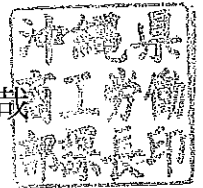 哉
沖縄県
商工労働
部課長印